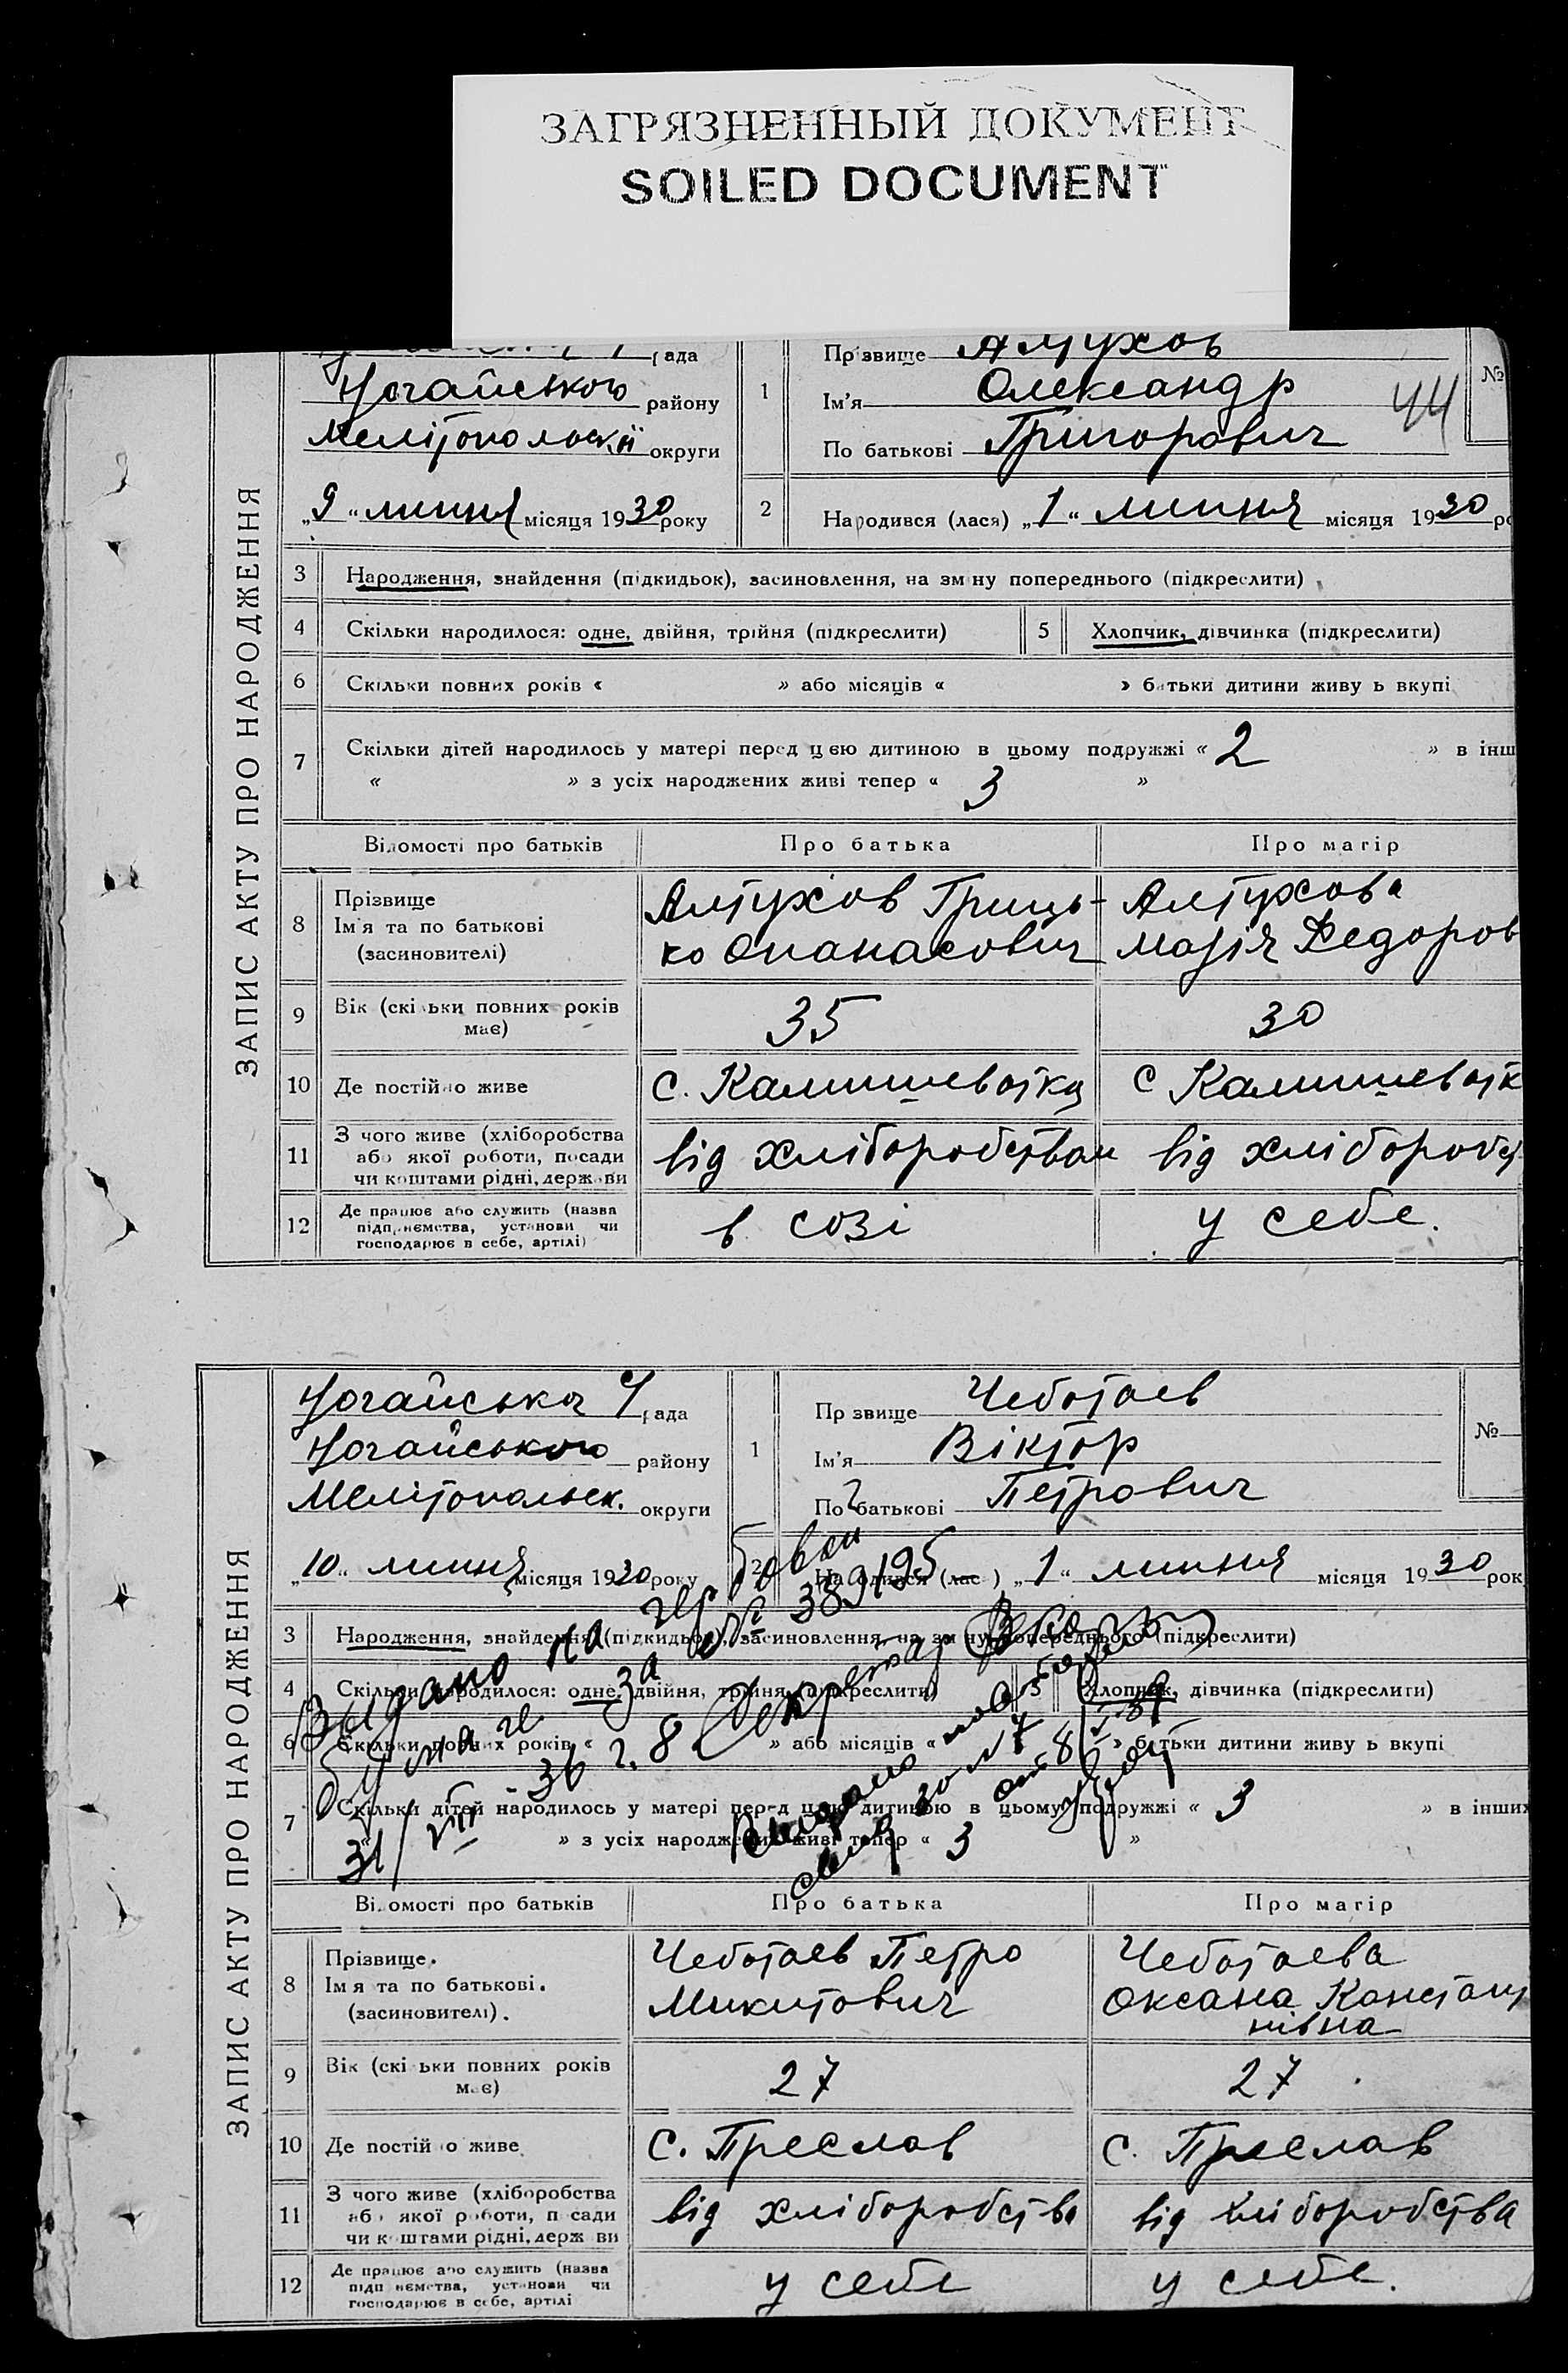 ЗАГРЯЗНЕННЫЙ ДОКУМЕНТ
SOILED DOCUMENT
ЗАПИС АКТУ ПРО НАРОДЖЕННЯ
рада
Ногайського району
Мелітопольскії округи
„9“ липня місяця 1930 року
1
Прізвище Алтухов
Ім'я Олександр
По батькові Григорович
44
№
2 Народився (лася) „1“ липня місяця 1930 ро
3 Народження, знайдення (підкидьок), засиновлення, на зміну попереднього (підкреслити)
4 Скільки народилося: одне, двійня, трійня (підкреслити) 5 Хлопчик, дівчинка (підкреслити)
6 Скільки повних років « » або місяців « » батьки дитини живуть вкупі
7 Скільки дітей народилось у матері перед цією дитиною в цьому подружжі « 2 » в інш
« » з усіх народжених живі тепер « 3 »
Відомості про батьків Про батька Про матір
8 Прізвище
Ім'я та по батькові
(засиновителі)
Алтухов Гриць-
ко Опанасович
Алтухова
Марія Федоров
9 Вік (скільки повних років
має)
35 30
10 Де постійно живе с. Камишеватка с Камишеватк
11 З чого живе (хліборобства
або якої роботи, посади
чи коштами рідні, держави
від хліборобства від хлібороб
12 Де працює або служить (назва
підприємства, установи чи
господарює в себе, артілі)
в созі у себе.
ЗАПИС АКТУ ПРО НАРОДЖЕННЯ
Ногайська рада
Ногайського району
Мелітопольск. округи
„10“ липня місяця 1930 року
1
Прізвище Чеботаев
Ім'я Віктор
По батькові Петрович
№
2 Народився (лася) „1“ липня місяця 1930 рок
3 Народження, знайдення (підкидьок), засиновлення, на зміну попереднього (підкреслити)
4 Скільки народилося: одне, двійня, трійня (підкреслити) 5 Хлопчик, дівчинка (підкреслити)
6 Скільки повних років « » або місяців « » батьки дитини живуть вкупі
7 Скільки дітей народилось у матері перед цією дитиною в цьому подружжі « 3 » в інших
« » з усіх народжених живі тепер « 3 »
Выдано на гербовой
бумаге за № 389195
31/VIII-36 г. Секретар
Выдано повторно
за № 7
Відомості про батьків Про батька Про матір
8 Прізвище.
Ім'я та по батькові.
(засиновителі).
Чеботаев Петро
Микитович
Чеботаева
Оксана Констант
нівна
9 Вік (скільки повних років
має)
27 27
10 Де постійно живе с. Преслав с. Преслав
11 З чого живе (хліборобства
або якої роботи, посади
чи коштами рідні, держави
від хліборобства від хліборобства
12 Де працює або служить (назва
підприємства, установи чи
господарює в себе, артілі
у себе у себе.